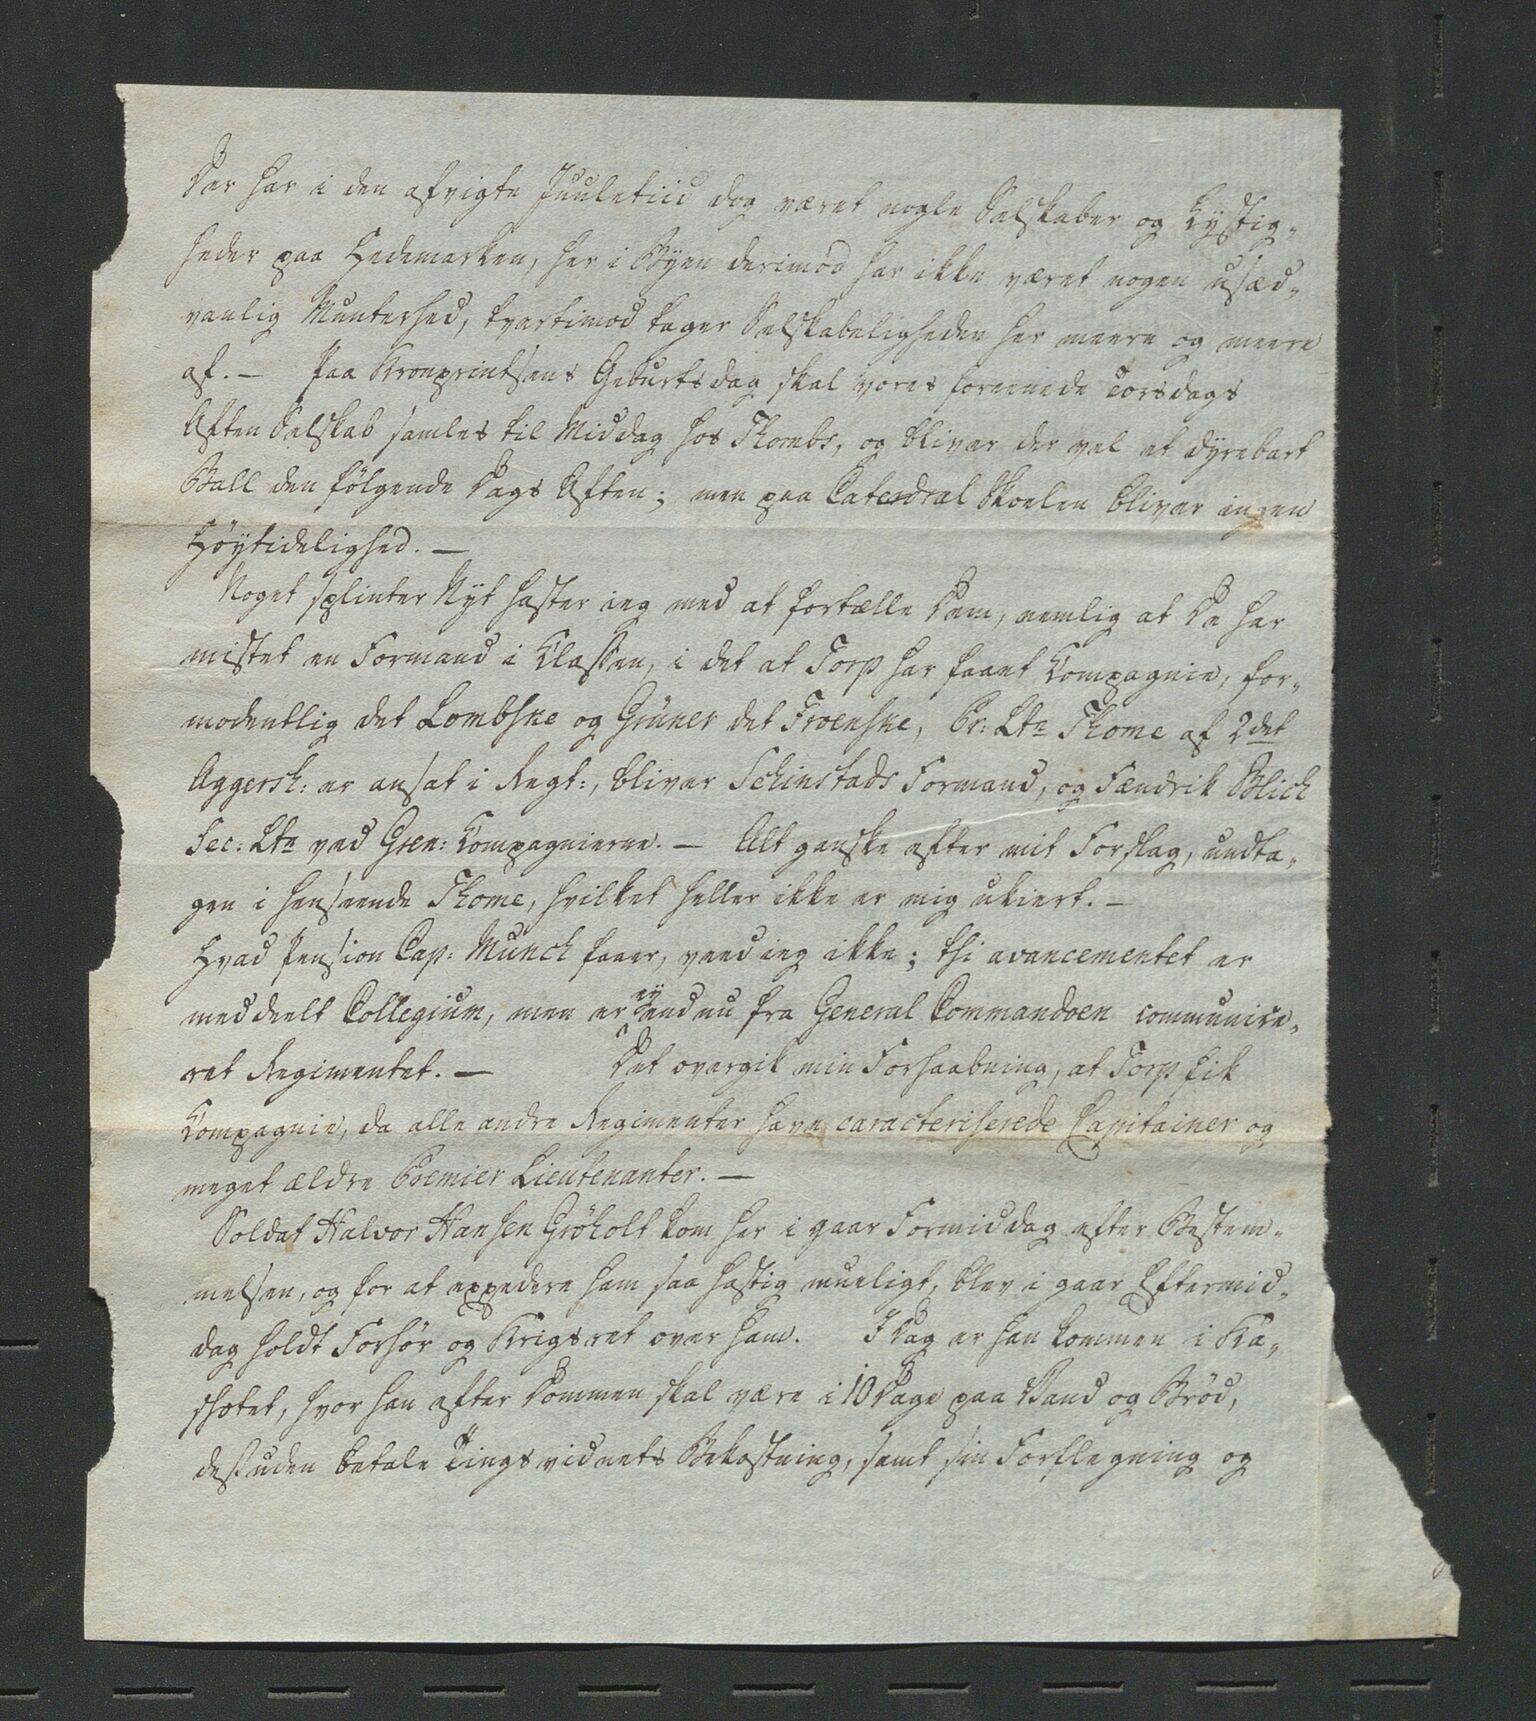 Der har i den afvigte Juuletiid dog været nogle Selskaber og Lystig-
heder paa Hedemarken, her i Byen derimod har ikke været nogen usæd-
vanlig Munterhed, tvartimod tager Selskabeligheden her meere og meere
af. — Paa Kronprintsens Geburtsdag skal vores fornemde Torsdags
Aften Selskab samles til Middag hos Thombs, og bliver der vel et dyrebart
Ball den følgende Dags Aften; men paa Catedral Skoelen bliver ingen
Høytidelighed. —
Noget splinter Nyt haster ieg med at fortælle Dem, nemlig at De har
mistet en Formand i Classen, i det at Torp har faaet Compagnie, for-
modentlig det Lombske og Grüner det Froenske, Pr: Ltn Thome af 2det
Aggersh: er ansat i Regt:, bliver Schinstads Formand, og Fændrik Blich
Sec: Ltn ved Gren: Compagnierne. — Alt ganske efter mit Forslag, undta-
gen i henseende Thome, hvilket heller ikke er mig ukiert. —
Hvad Pension Cap: Munch faaer, veed ieg ikke; thi avancementet er
meddeelt Collegium, men er ey endnu fra General Commandoen communice-
ret Regimentet. — Det overgik min Forhaabning, at Torp fik
Compagnie, da alle andre Regimenter have caracteriserede Capitainer og
meget ældre Premier Lieutenanter. —
Soldat Halvor Hansen Gröholt kom her i gaar Formiddag efter Bestem-
melsen, og for at expedere ham saa hastig mueligt, blev i gaar Eftermid-
dag holdt Forhör og Krigsret over ham. I Dag er han kommen i Ka-
schotet, hvor han efter Dommen skal være i 10 Dage paa Vand og Brød,
desuden betale Tingsvidnets Bekostning, samt sin Forflegning og